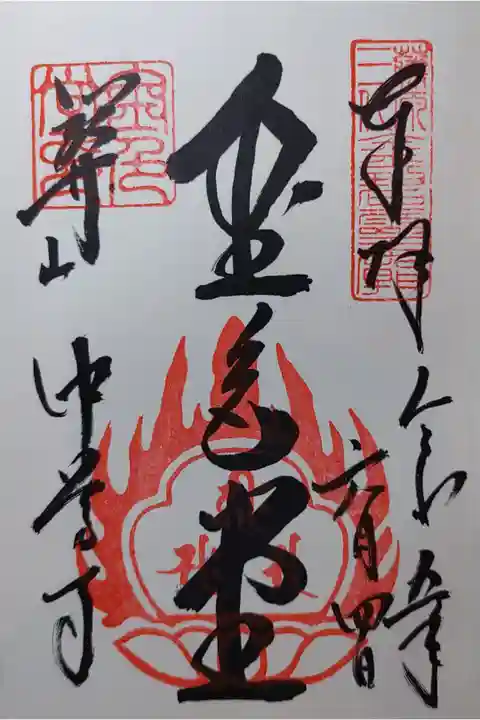 奉拝
令和五年
六月四日
金色堂
関山
中尊寺